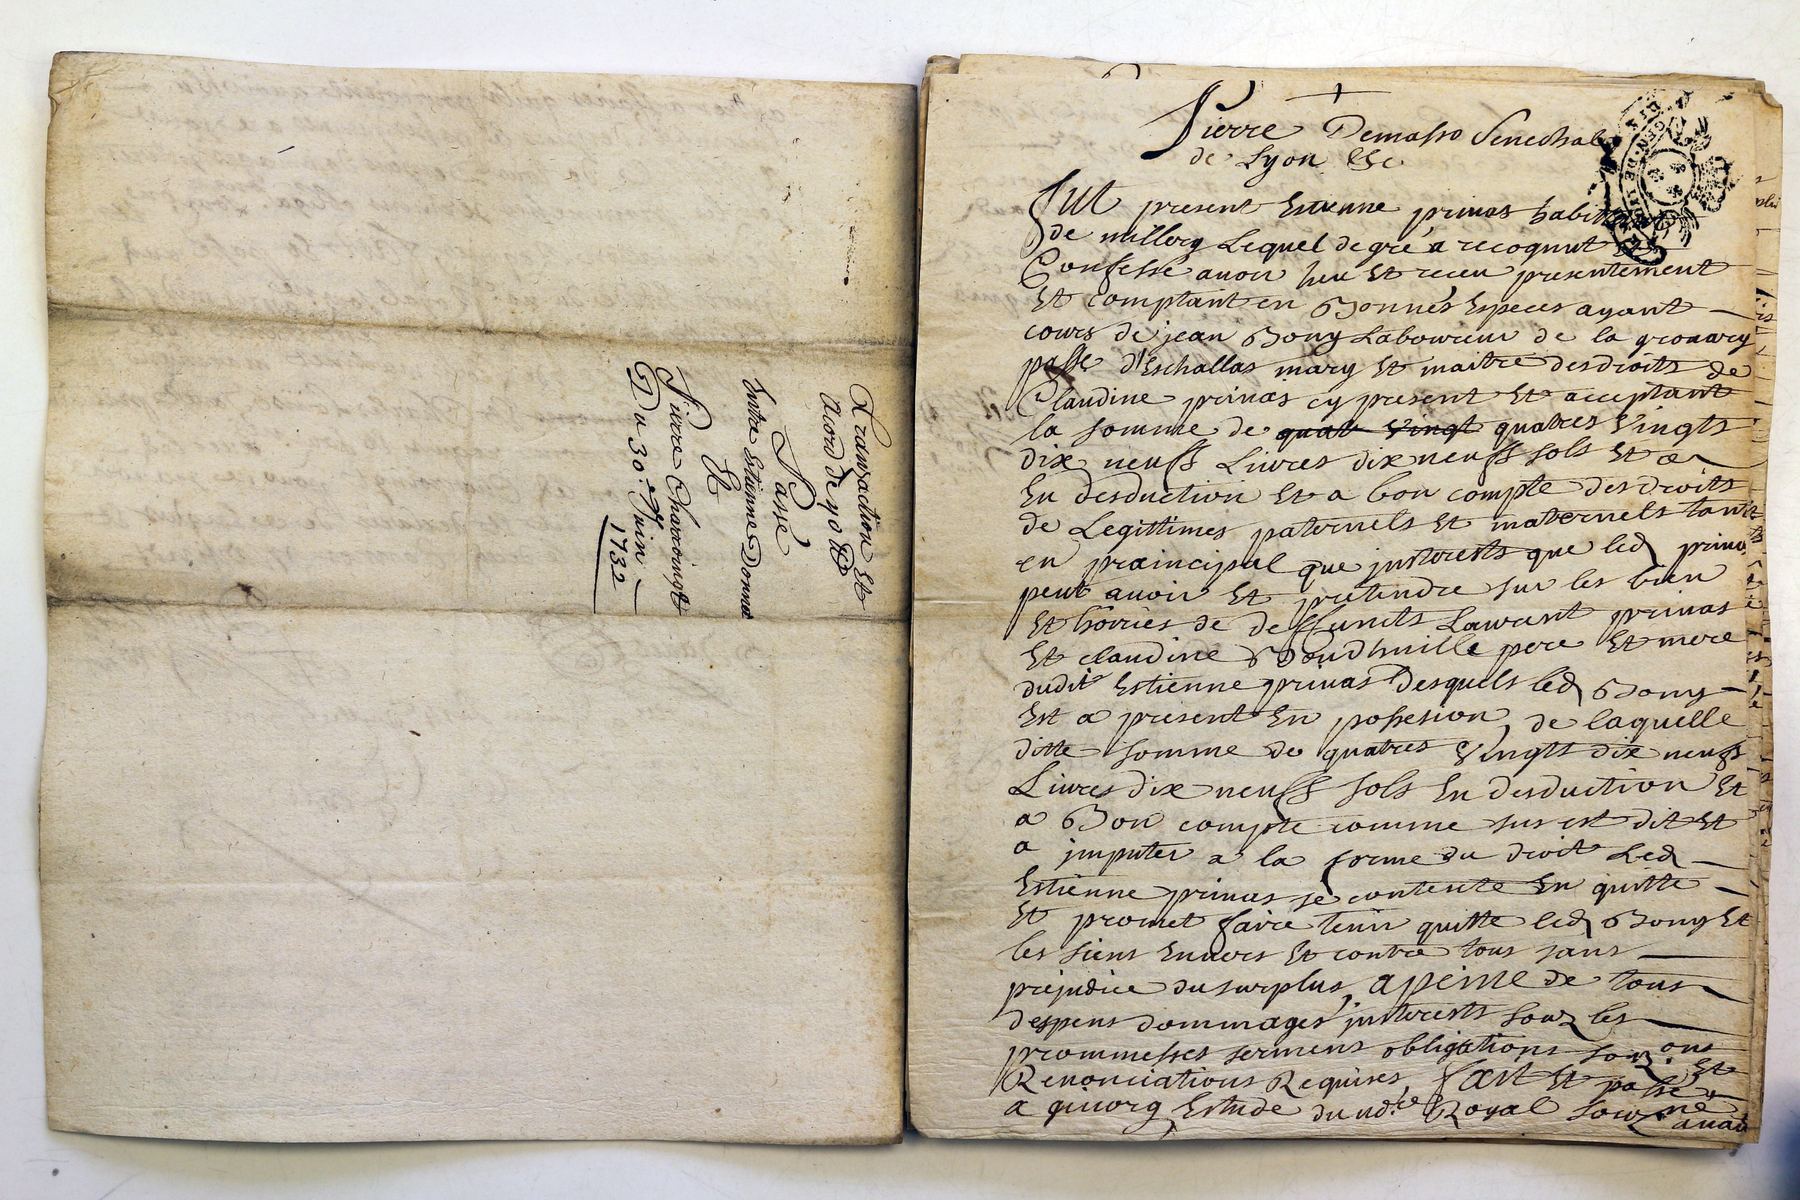 Transaction et
acord de 90 ll
Passé
Entre Estienne Donnat
Et
Pierre Charvingt
Du 30.e Juin
1732
Pierre Demasso Senechal
de Lyon &c
Fut present Estienne primas habittant
de millery Lequel de gré a recognut et
Confessé avoir heu et receu presentement
Et comptant en Bonnes Especes ayant
cours de jean Bony Laboureur de la
passe d'Eschallas mary et maitre des droits de
Claudine primas cy present et acceptant
la somme de quat vingt quatres vingts
dix neuff Livres dix neuff sols et ce
En desduction et a bon compte des droits
de Legittimes paternels et maternels tant
en praincipal que jnterests que led prima
peut avoir et pretendre sur les bien
et hoiries de deffunts Laurent primas
et claudine pere et mere
dudit Estienne primas Desquels led Bony
Est a present En possesion, de laquelle
ditte somme de quatres vingts dix neuff
Livres dix neuff sols En desduction et
a Bon compte comme sus est dit et
a jmputer a la forme du droit Led
Estienne primas se contente En quitte
et promet faire tenir quitte led Bony et
les siens Envers et contre tous sans
prejudice du surplus, a peine de tous
despens dommages jnterests souz les
prommesses sermens obligations souz ons
Renonciations Requises, fait et passé
a givorg Estude du nd.re Royal souz.né
avan